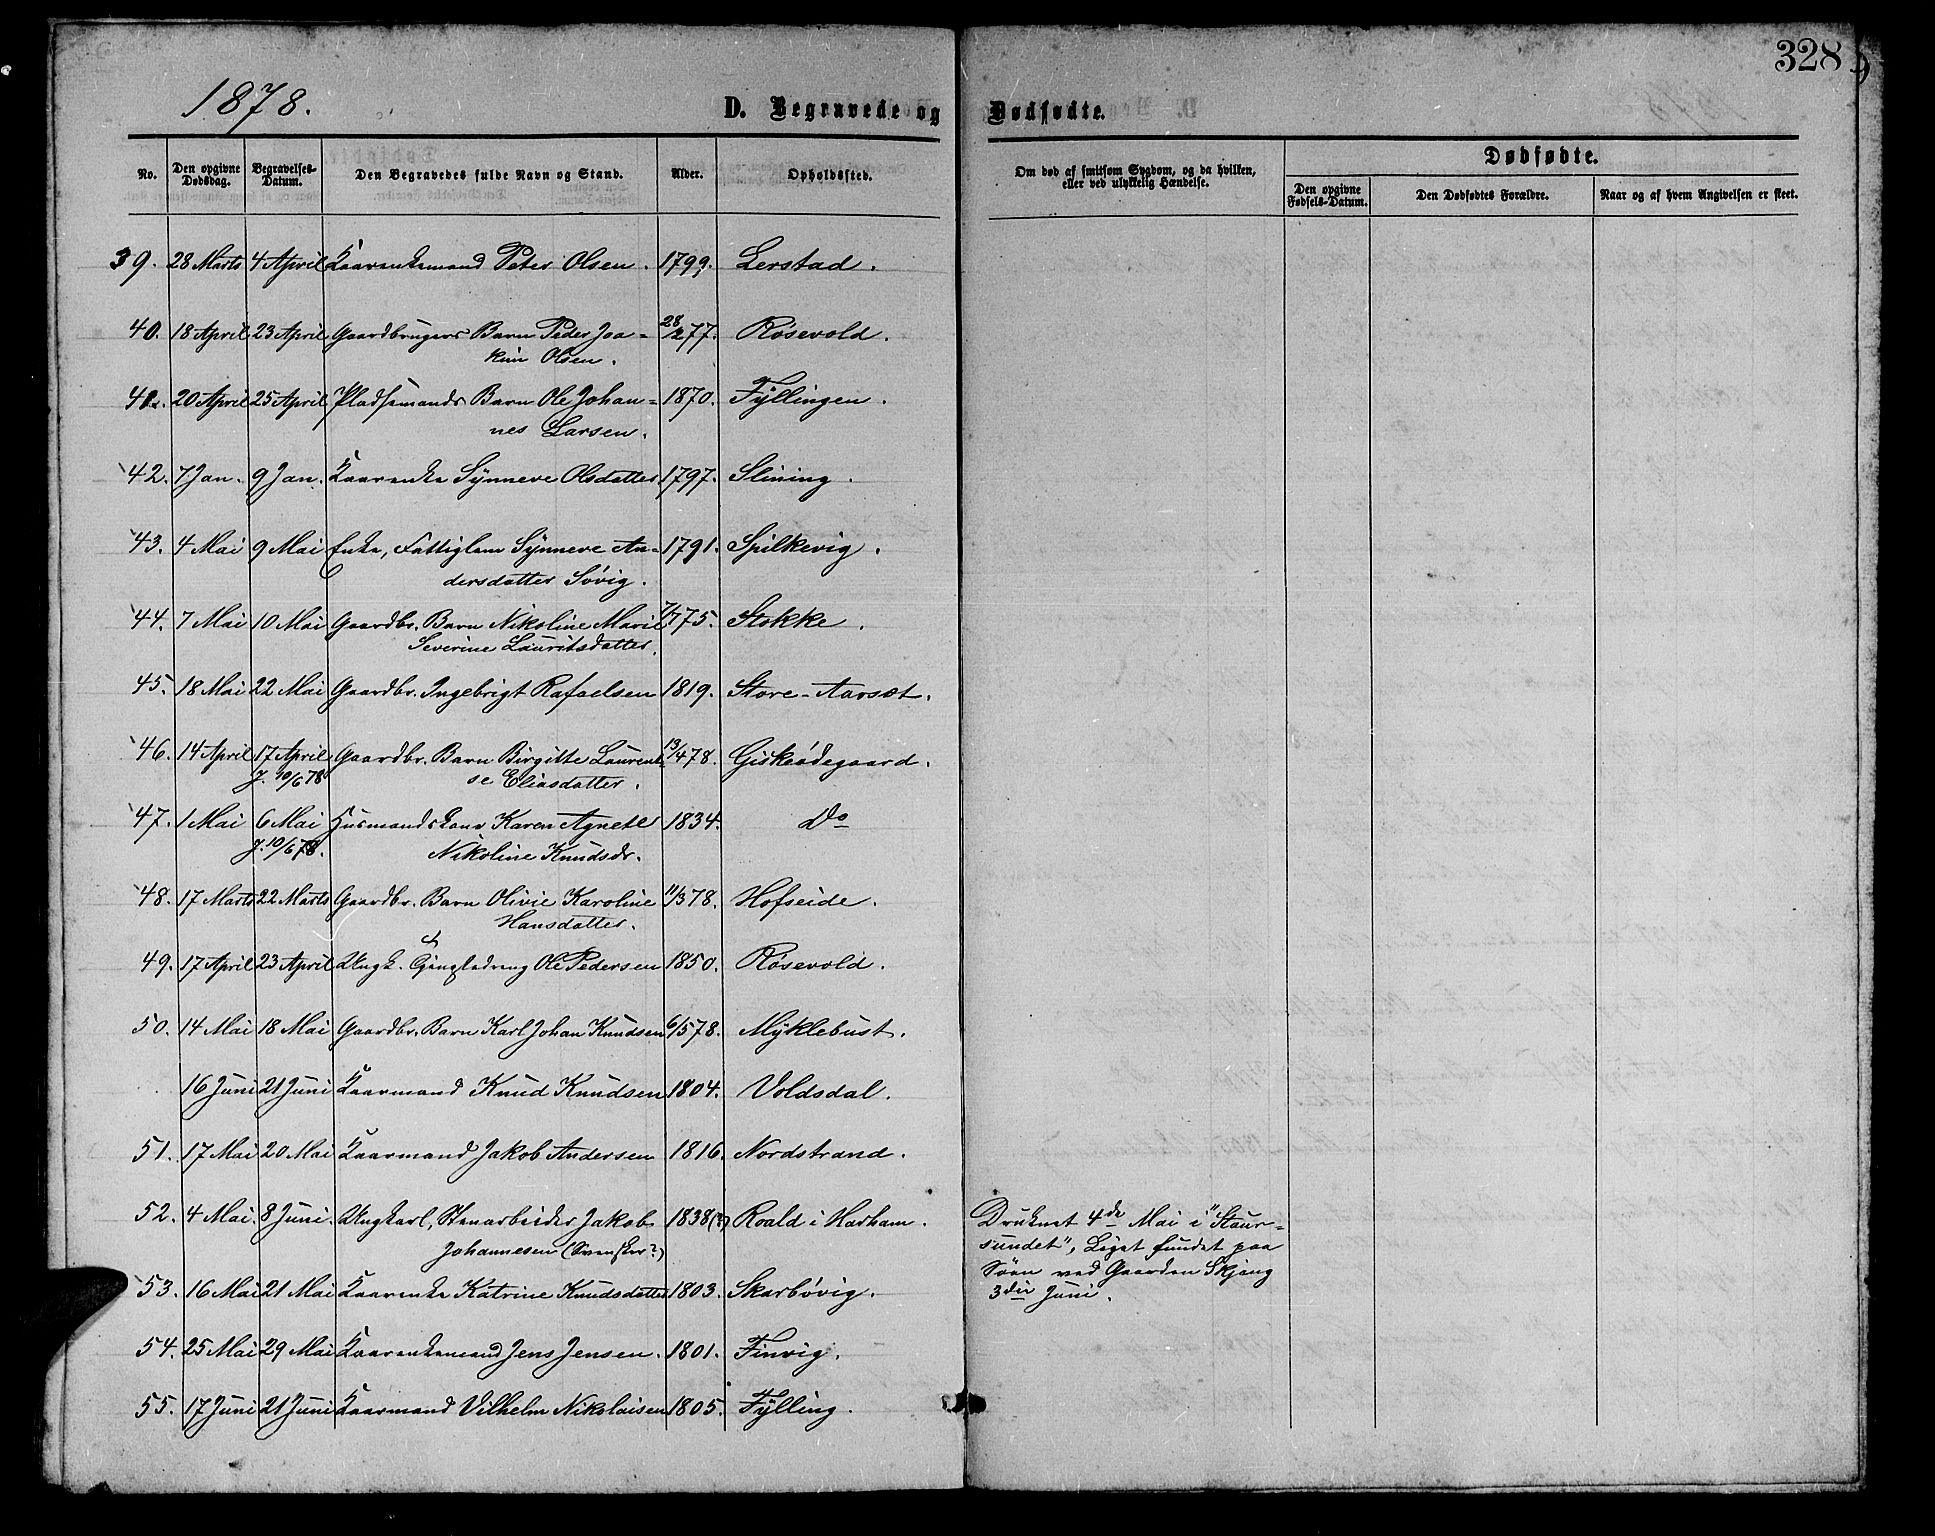 328
1878.
D. Begravede og Dødfødte.
No. Den opgivne Dødsdag. Begravelses-Datum. Den Begravedes fulde Navn og Stand. Alder. Opholdssted. Om død af smitsom Sygdom, og da hvilken, eller ved ulykkelig Hændelse. Dødfødte.
Den opgivne Fødsels-Datum. Den Dødfødtes Forældre. Naar og af hvem Angivelsen er skeet.
39. 28 Marts 4 April Kaarenkemand Peter Olsen. 1799. Lerstad.
40. 18 April 23 April Gaardbrugers Barn Peder Joa- 28/277. Røsevold.
kim Olsen.
41. 20 April 25 April Pladsemands Barn Ole Johan- 1870. Fyllingen.
nes Larsen.
42. 7 Jan. 9 Jan. Kaarenke Synneve Olsdatter 1797. Slining.
43. 4 Mai 9 Mai Enke, Fattiglem Synneve An- 1791. Spilkevig.
dersdatter Søvig.
44. 7 Mai 10 Mai Gaardbr. Barn Nikoline Marie 7/775. Stokke.
Severine Lauritsdatter.
45. 18 Mai 22 Mai Gaardbr. Ingebrigt Rafaelsen 1819. Store-Aarsæt.
46. 14 April 17 April Gaardbr. Barn Birgitte Laurent- 13/478. Giskeødegaard.
J. 10/6 78 se Eliasdatter.
47. 1 Mai 6 Mai Husmandskone Karen Agnete 1834. Do
J. 10/6 78. Nikoline Knudsdr.
48. 17 Marts 22 Marts Gaardbr. Barn Olivie Karoline 11/378. Hofseide.
Hansdatter.
49. 17 April 23 April Ungk. Ole Pedersen 1850. Røsevold.
50. 14 Mai 18 Mai Gaardbr. Barn Karl Johan Knudsen 6/578. Myklebust.
16 Juni 21 Juni Kaarmand Knud Knudsen 1804. Voldsdal.
51. 17 Mai 20 Mai Kaarmand Jakob Andersen 1816. Nordstrand.
52. 4 Mai 8 Juni. Ungkarl, Stenarbeider Jakob 1838(?) Roald i Harham. Druknet 4de Mai i "Staur-
Johannesen (Svensker?) sundet", Liget fundet paa
Søen ved Gaarden Skjong
53. 16 Mai 21 Mai Kaarenke Katrine Knudsdatter 1803. Skarbøvig. 3die Juni.
54. 25 Mai 29 Mai Kaarenkemand Jens Jensen. 1801. Finvig.
55. 17 Juni 21 Juni Kaarmand Vilhelm Nikolaisen 1805. Fylling.